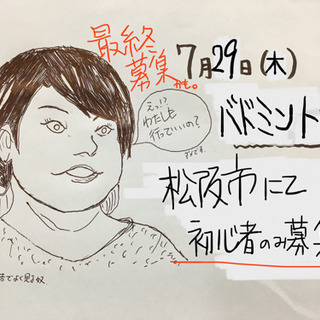 最終
募集かも。
7月29日(木)
えっ!?
わたしも
行っていいの?
バドミント
松阪市にて
初心者のみ募集